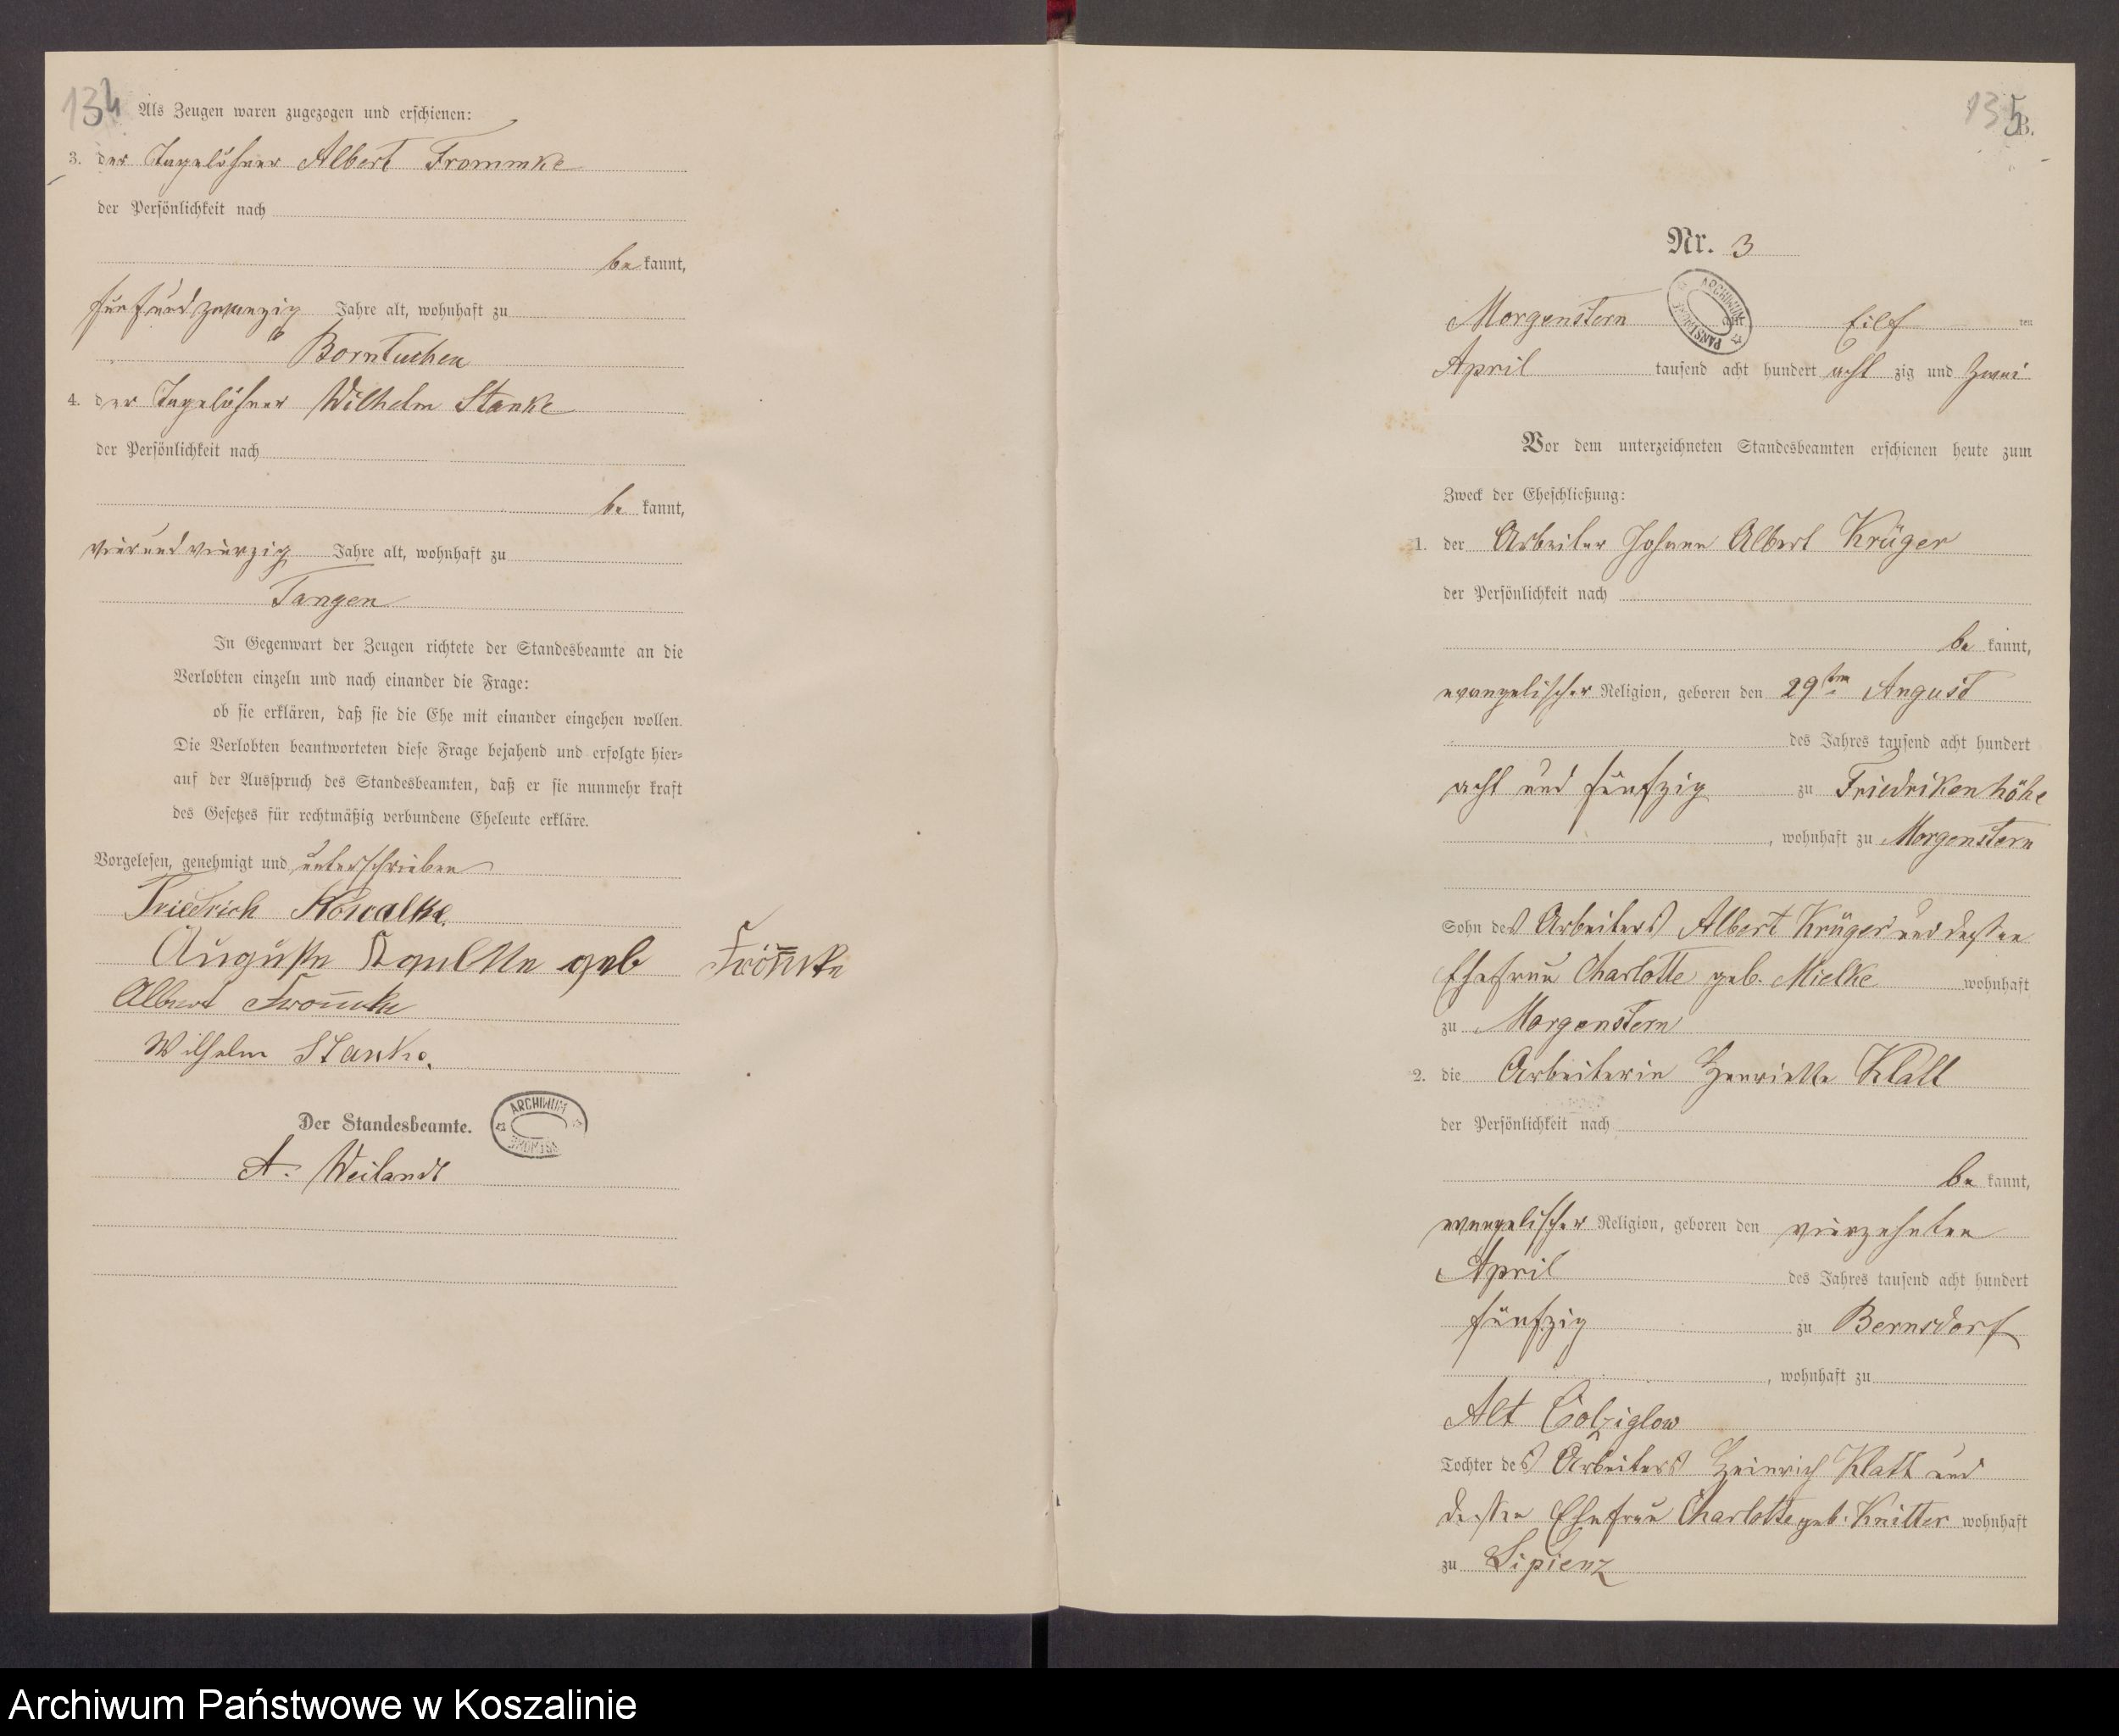 134
Als Zeugen waren zugezogen und erschienen:
3. der Tagelöhner Albert Frommke
der Persönlichkeit nach
be kannt,
fünfundzwanzig Jahre alt, wohnhaft zu
Borntuchen
4. der Tagelöhner Wilhelm Stanke
der Persönlichkeit nach
be kannt,
vierundvierzig Jahre alt, wohnhaft zu
Tangen
In Gegenwart der Zeugen richtete der Standesbeamte an die
Verlobten einzeln und nach einander die Frage:
ob sie erklären, daß sie die Ehe mit einander eingehen wollen.
Die Verlobten beantworteten diese Frage bejahend und erfolgte hier=
auf der Ausspruch des Standesbeamten, daß er sie nunmehr kraft
des Gesetzes für rechtmäßig verbundene Eheleute erkläre.
Vorgelesen, genehmigt und unterschrieben
Friedrich
Auguste geb
Albert Fromke
Wilhelm Stanke.
Der Standesbeamte.
ARCHIWUM
A. Weilandt
135
B.
Nr. 3
ARCHIWUM PAŃSTWOWE
Morgenstern am Eilf ten
April tausend acht hundert acht zig und zwei
Vor dem unterzeichneten Standesbeamten erschienen heute zum
Zweck der Eheschließung:
1. der Arbeiter Johann Albert Krüger
der Persönlichkeit nach
be kannt,
evangelischer Religion, geboren den 29ten August
des Jahres tausend acht hundert
acht und fünfzig zu Friedrikenhöhe
, wohnhaft zu Morgenstern
Sohn des Arbeiters Albert Krüger und dessen
Ehefrau Charlotte geb. Mielke wohnhaft
zu Morgenstern
2. die Arbeiterin Henriette Klatt
der Persönlichkeit nach
be kannt,
evangelischer Religion, geboren den vierzehnten
April des Jahres tausend acht hundert
fünfzig zu Bernsdorf
, wohnhaft zu
Alt Colziglow
Tochter des Arbeiters Heinrich Klatt und
dessen Ehefrau Charlotte geb. Knitter wohnhaft
zu Lipienz
Archiwum Państwowe w Koszalinie